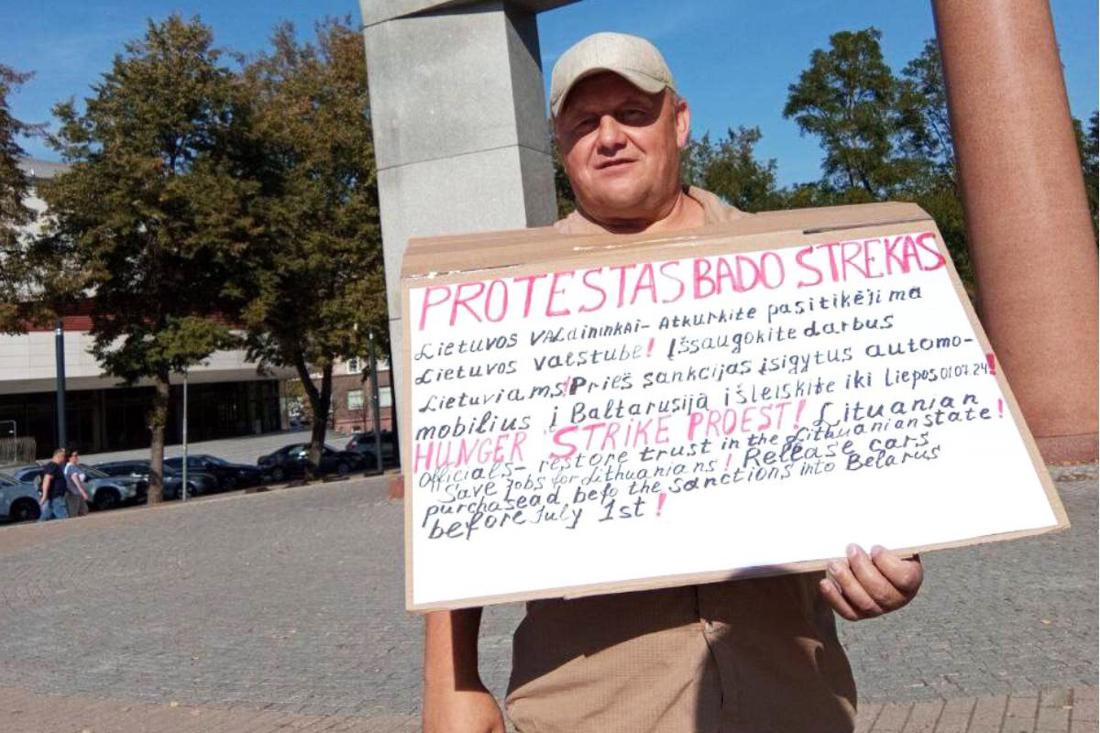 PROTESTAS BADO STREKAS
Lietuvos valdininkai - Atkurkite pasitikėjima
Lietuvos valstube! Išsaugokite darbus
Lietuviams! Prieš sankcijas įsigytus automo-
mobilius į Baltarusiją išleiskite iki liepos 01.07.24!
HUNGER STRIKE PROEST! Lituanian
Officials - restore trust in the Lithuanian state!
Save jobs for Lithuanians! Release cars
purchasead, befo the sanctions into Belarus
before July 1st!